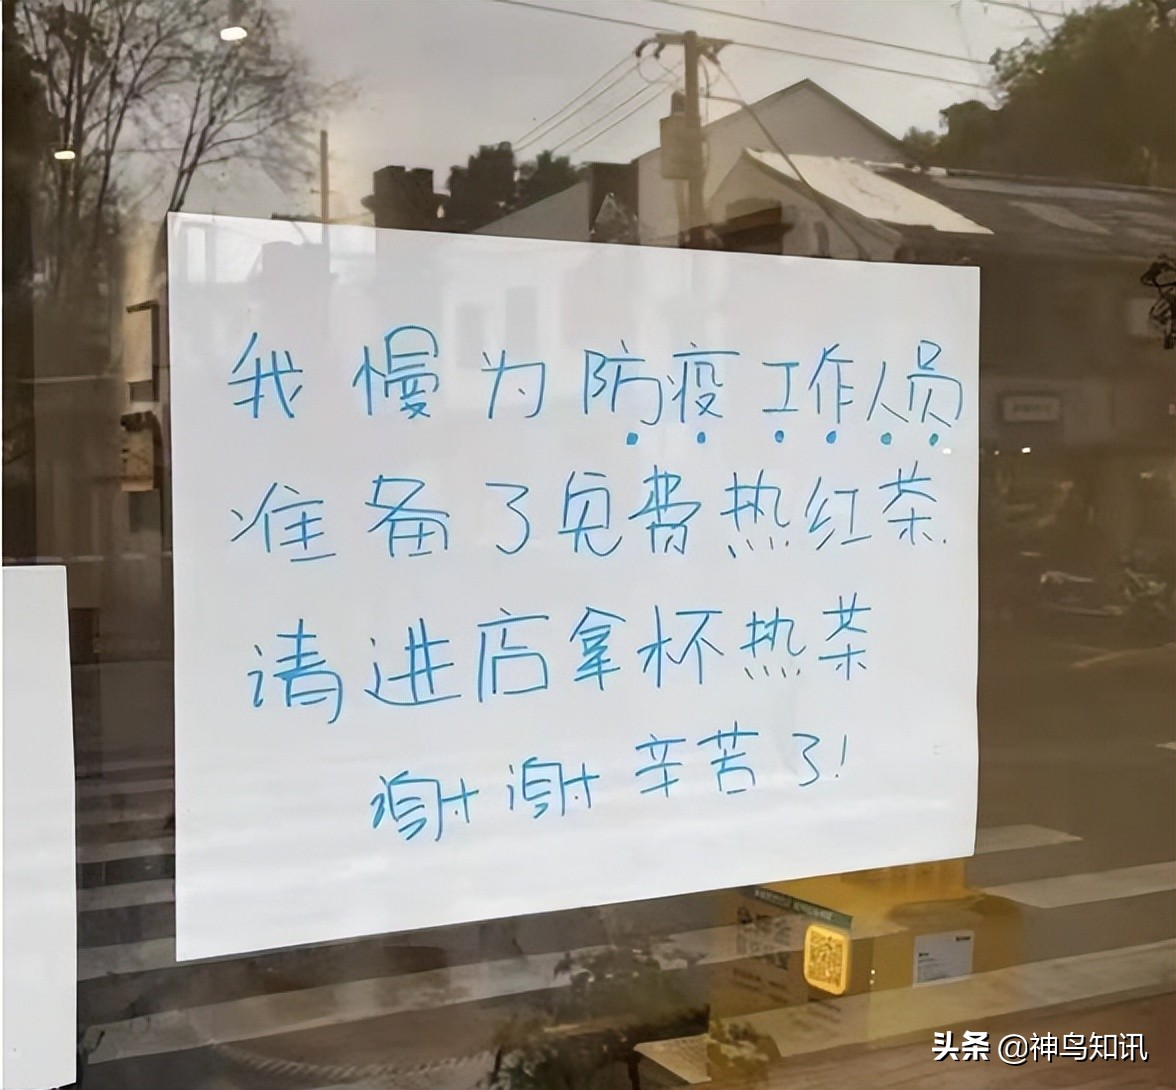 我慢为防疫工作人员
准备了免费热红茶.
请进店拿杯热茶
谢谢 辛苦了!
头条 @神鸟知讯